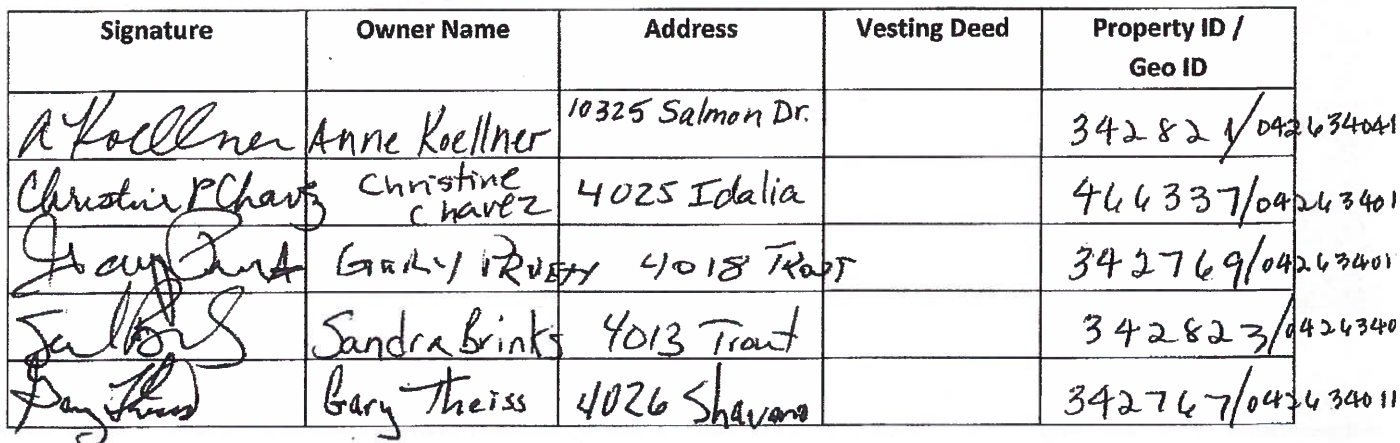 Signature Owner Name Address Vesting Deed Property ID /
Geo ID
A Koellner Anne Koellner 10325 Salmon Dr. 342821/042634041
Christine P Chavez Christine 4025 Idalia 466337/04263401
Chavez
Gary Pruett 4018 Trout 342769/04263401
Sandra Brinks 4013 Trout 342823/0426340
Gary Theiss Gary Theiss 4026 Shavano 342767/042634011